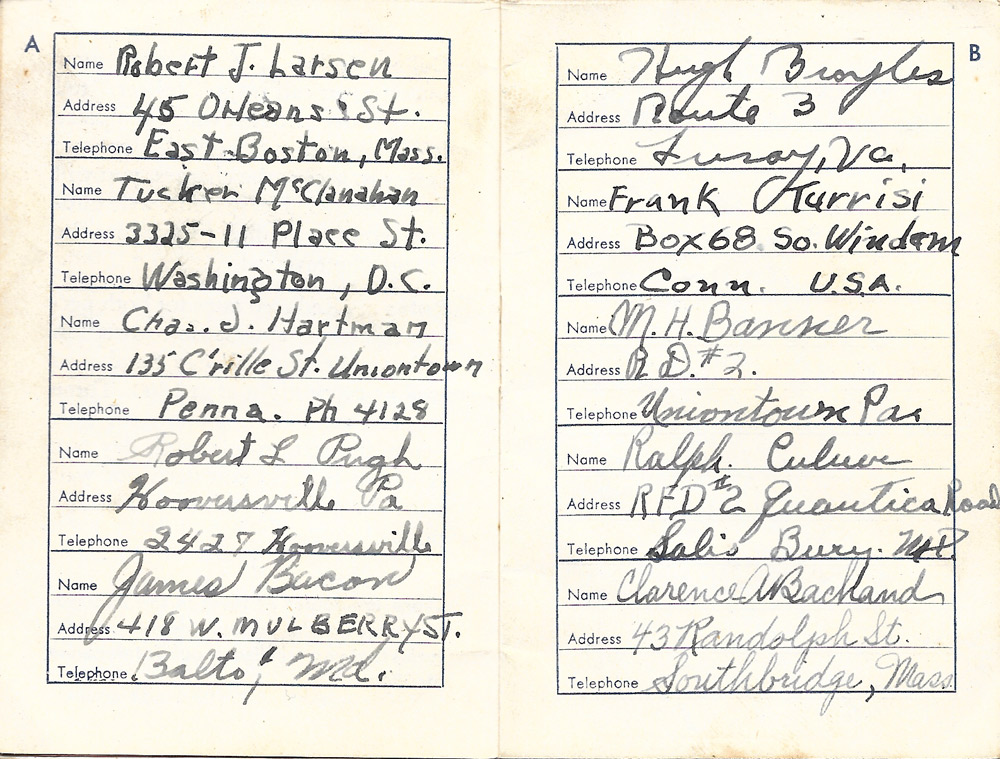 A
Name Robert J. Larsen
Address 45 Orleans St.
Telephone East Boston, Mass.
Name Tucker McClanahan
Address 3325-11 Place St.
Telephone Washington, D.C.
Name Chas. J. Hartman
Address 135 C'rille St. Uniontown
Telephone Penna. Ph 4128
Name Robert L Pugh
Address Hooversville Pa
Telephone 2427 Hooversville
Name James Bacon
Address 418 W. MULBERRY ST.
Telephone Balto, Md.
B
Name Hugh Broyles
Address Route 3
Telephone Luray, Va.
Name Frank Turrisi
Address Box 68 So. Windam
Telephone Conn. U.S.A.
Name M. H. Banner
Address R. D. #2.
Telephone Uniontown Pa
Name Ralph Culver
Address RFD #2 Quantica Road
Telephone Salis Bury. Md.
Name Clarence A Backland
Address 43 Randolph St.
Telephone Southbridge, Mass.